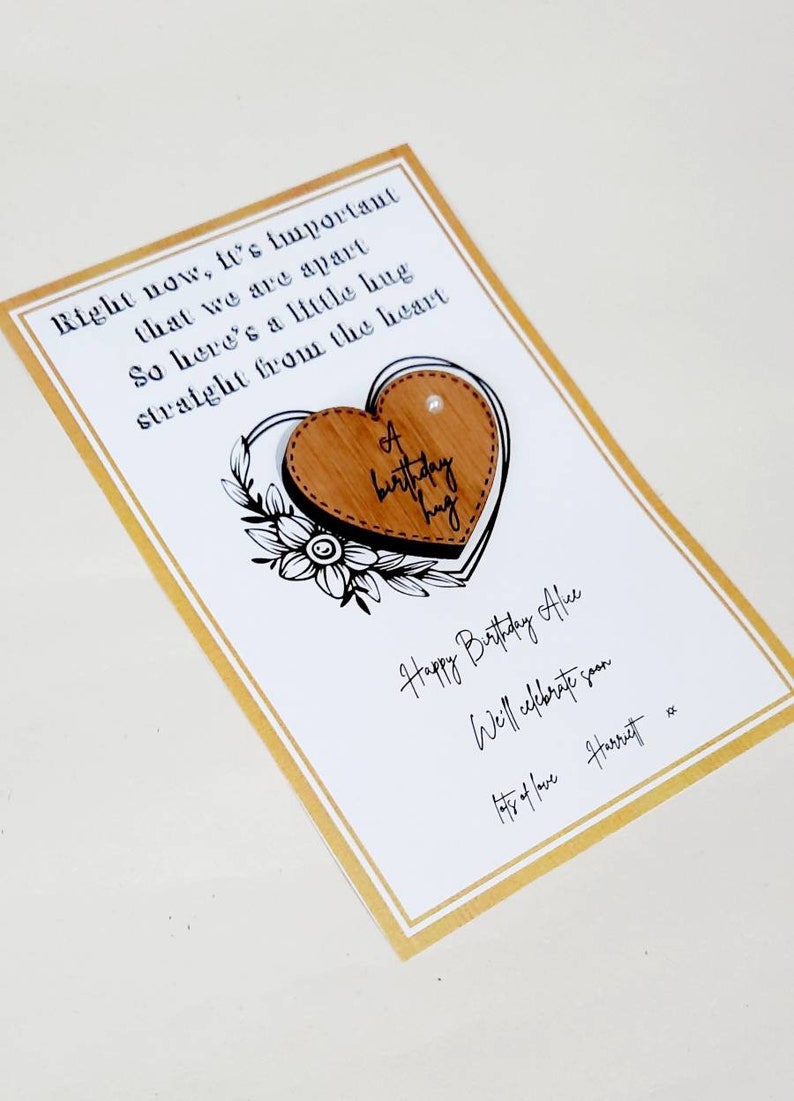 Right now, it's important
that we are apart
So here's a little hug
straight from the heart
A
birthday
hug
Happy Birthday Alice
We'll celebrate soon
lots of love Harriett xx